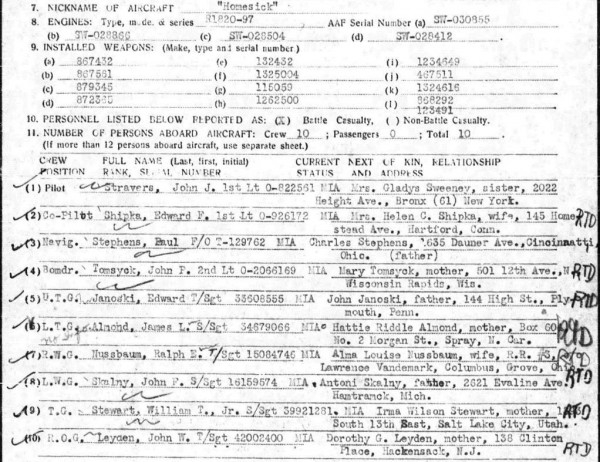 7. NICKNAME OF AIRCRAFT "Homesick"
8. ENGINES: Type, mode. & series R1820-97 AAF Serial Number (a) SW-030855
(b) SW-028866 (c) SW-028504 (d) SW-028412
9. INSTALLED WEAPONS: (Make, type and serial number)
(a) 867432 (e) 132432 (i) 1234649
(b) 867581 (f) 1325004 (j) 467511
(c) 879345 (g) 115059 (k) 1324616
(d) 872385 (h) 1262500 (l) 868292
123491
10. PERSONNEL LISTED BELOW REPORTED AS: (X) Battle Casualty, ( ) Non-Battle Casualty.
11. NUMBER OF PERSONS ABOARD AIRCRAFT: Crew 10 ; Passengers 0 ; Total 10
(If more than 12 persons aboard aircraft, use separate sheet.)
CREW FULL NAME (Last, first, initial) CURRENT NEXT OF KIN, RELATIONSHIP
POSITION RANK, SERIAL NUMBER STATUS AND ADDRESS
(1) Pilot Stravers, John J. 1st Lt 0-822561 MIA Mrs. Gladys Sweeney, sister, 2022
Height Ave., Bronx (61) New York.
(2) Co-Pilot Shipka, Edward F. 1st Lt 0-926172 MIA Mrs. Helen C. Shipka, wife, 145 Home RTD
stead Ave., Hartford, Conn.
(3) Navig. Stephens, Paul F/O T-129762 MIA Charles Stephens, 1635 Dauner Ave., Cincinnatti,
Ohio. (father) RTD
(4) Bomdr. Tomsyck, John P. 2nd Lt 0-2066169 MIA Mary Tomsyck, mother, 501 12th Ave., N. RTD
Wisconsin Rapids, Wis.
(5) U.T.G. Janoski, Edward T/Sgt 33608555 MIA John Janoski, father, 144 High St., Ply- RTD
mouth, Penn.
(6) L.T.G. Almond, James L. S/Sgt 34679066 MIA Hattie Riddle Almond, mother, Box 60 RTD
No. 2 Morgan St., Spray, N. Car.
(7) R.W.G. Nussbaum, Ralph E. T/Sgt 15084746 MIA Alma Louise Nussbaum, wife, R.R. RTD
Lawrence Vandemark, Columbus, Grove,
(8) L.W.G. Skalny, John F. S/Sgt 16159574 MIA Antoni Skalny, father, 2621 Evaline Ave. RTD
Hamtramck, Mich.
(9) T.G. Stewart, William T., Jr. S/Sgt 39921281. MIA Irma Wilson Stewart, mother, RTD
South 13th East, Salt Lake City, Utah.
(10) R.O.G. Leyden, John W. T/Sgt 42002400 MIA Dorothy G. Leyden, mother, 138 Clinton RTD
Place, Hackensack, N.J.